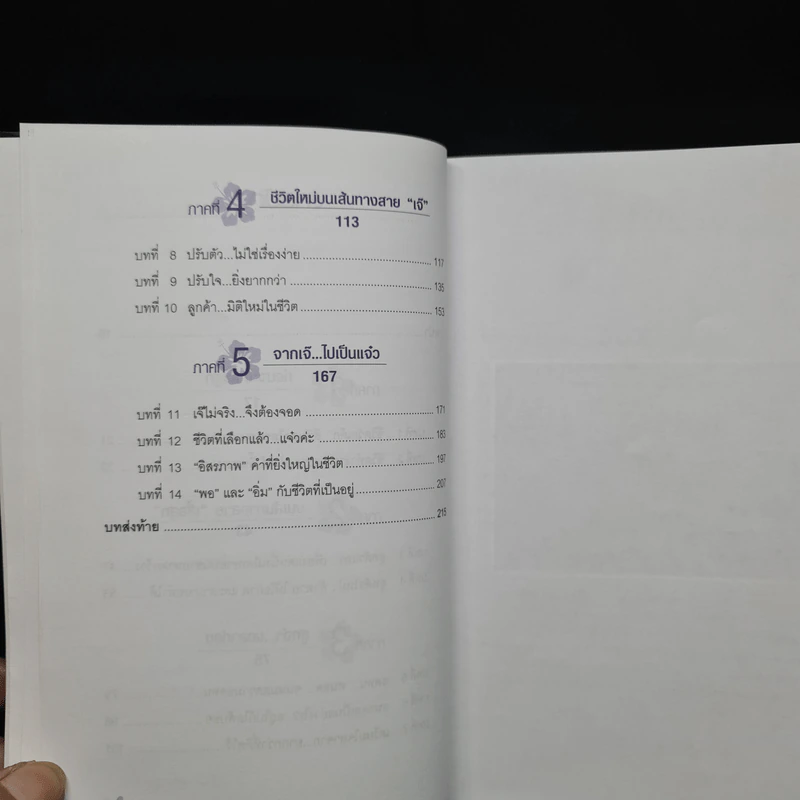 ภาคที่ 4 ชีวิตใหม่บนเส้นทางสาย “เจ๊”
113
บทที่ 8 ปรับตัว...ไม่ใช่เรื่องง่าย ........ 117
บทที่ 9 ปรับใจ...ยิ่งยากกว่า ........ 135
บทที่ 10 ลูกค้า...มิติใหม่ในชีวิต ........ 153
ภาคที่ 5 จากเจ๊...ไปเป็นแจ๋ว
167
บทที่ 11 เจ๊ไม่จริง...จึงต้องจอด ........ 171
บทที่ 12 ชีวิตที่เลือกแล้ว...แจ๋วค่ะ ........ 183
บทที่ 13 “อิสรภาพ” คำที่ยิ่งใหญ่ในชีวิต ........ 197
บทที่ 14 “พอ” และ “อิ่ม” กับชีวิตที่เป็นอยู่ ........ 207
บทส่งท้าย ........ 215